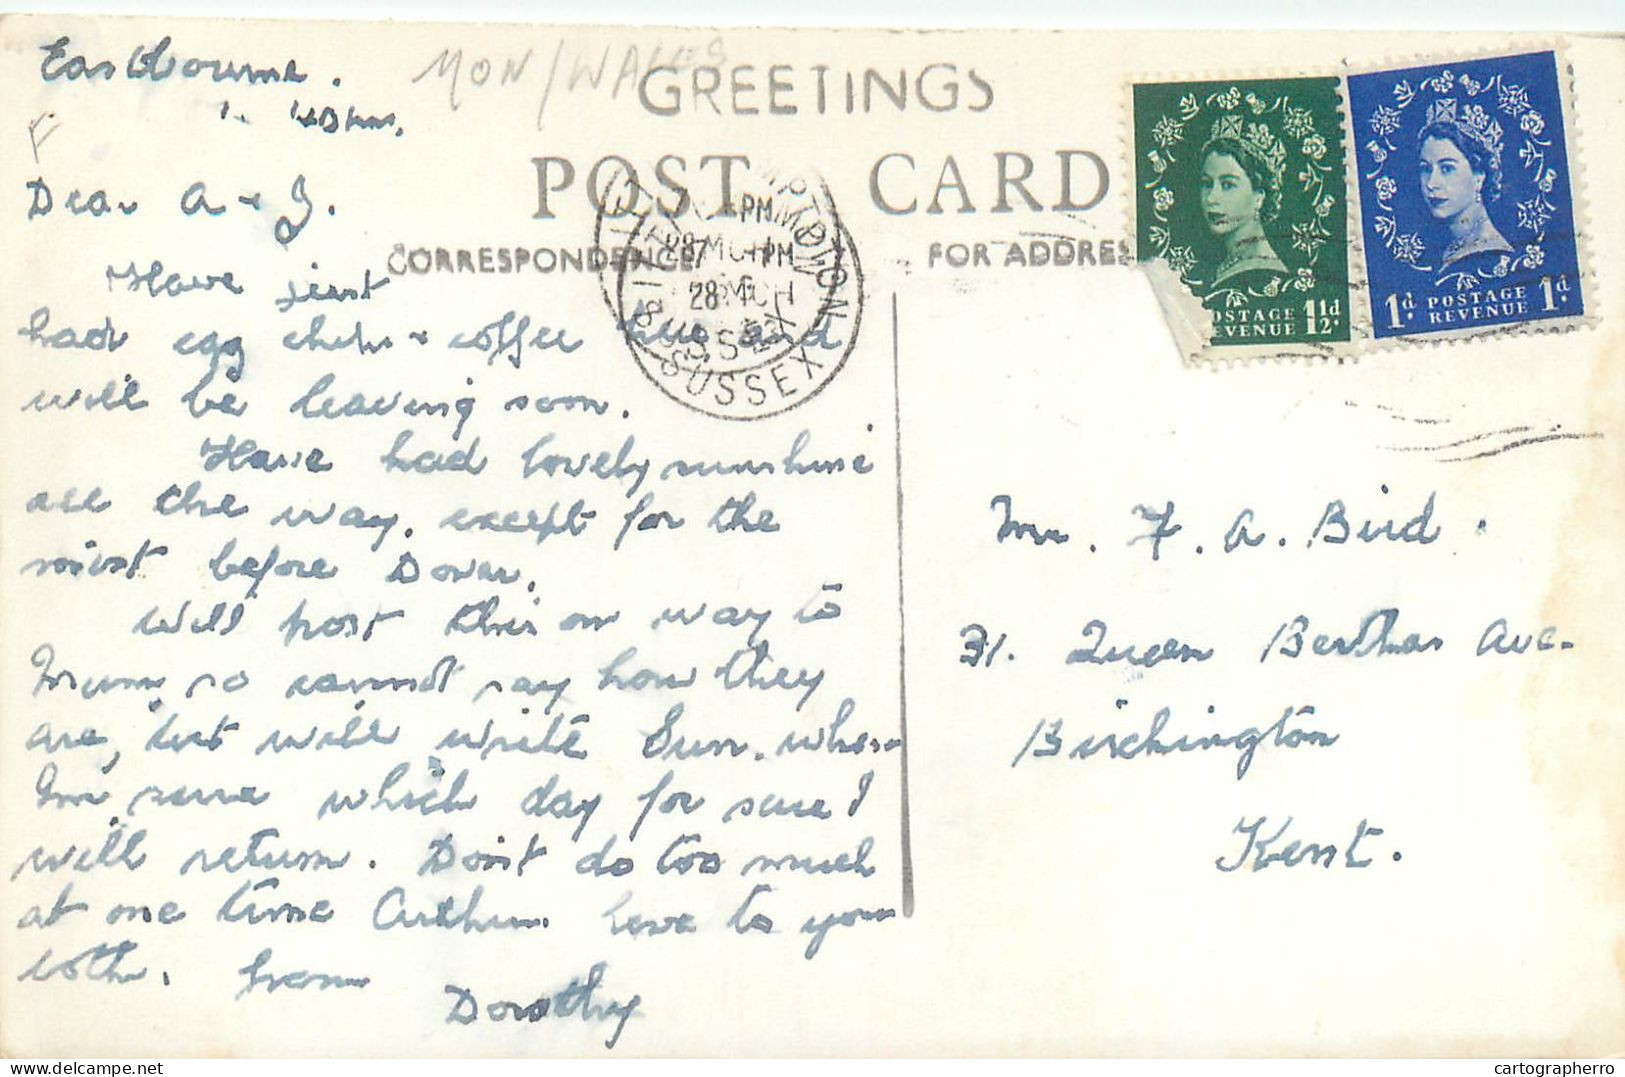 Eastbourne.
MON/WALES
GREETINGS
POST CARD
CORRESPONDENCE
FOR ADDRES
7 PM
28 MCH
SUSSEX
OSTAGE
EVENUE 1½d
1d POSTAGE 1d
REVENUE
Dear A & J.
Have just
had egg chips & coffee here and
will be leaving soon.
Have had lovely sunshine
all the way, except for the
mist before Dover.
Will post this on way to
Mum, so cannot say how they
are, but will write Sun. when
I'm sure which day for sure I
will return. Don't do too much
at one time Arthur. Love to you
both. from
Dorothy
Mr. F. A. Bird.
31. Queen Berthas Ave.
Birchington
Kent.
cartographerro